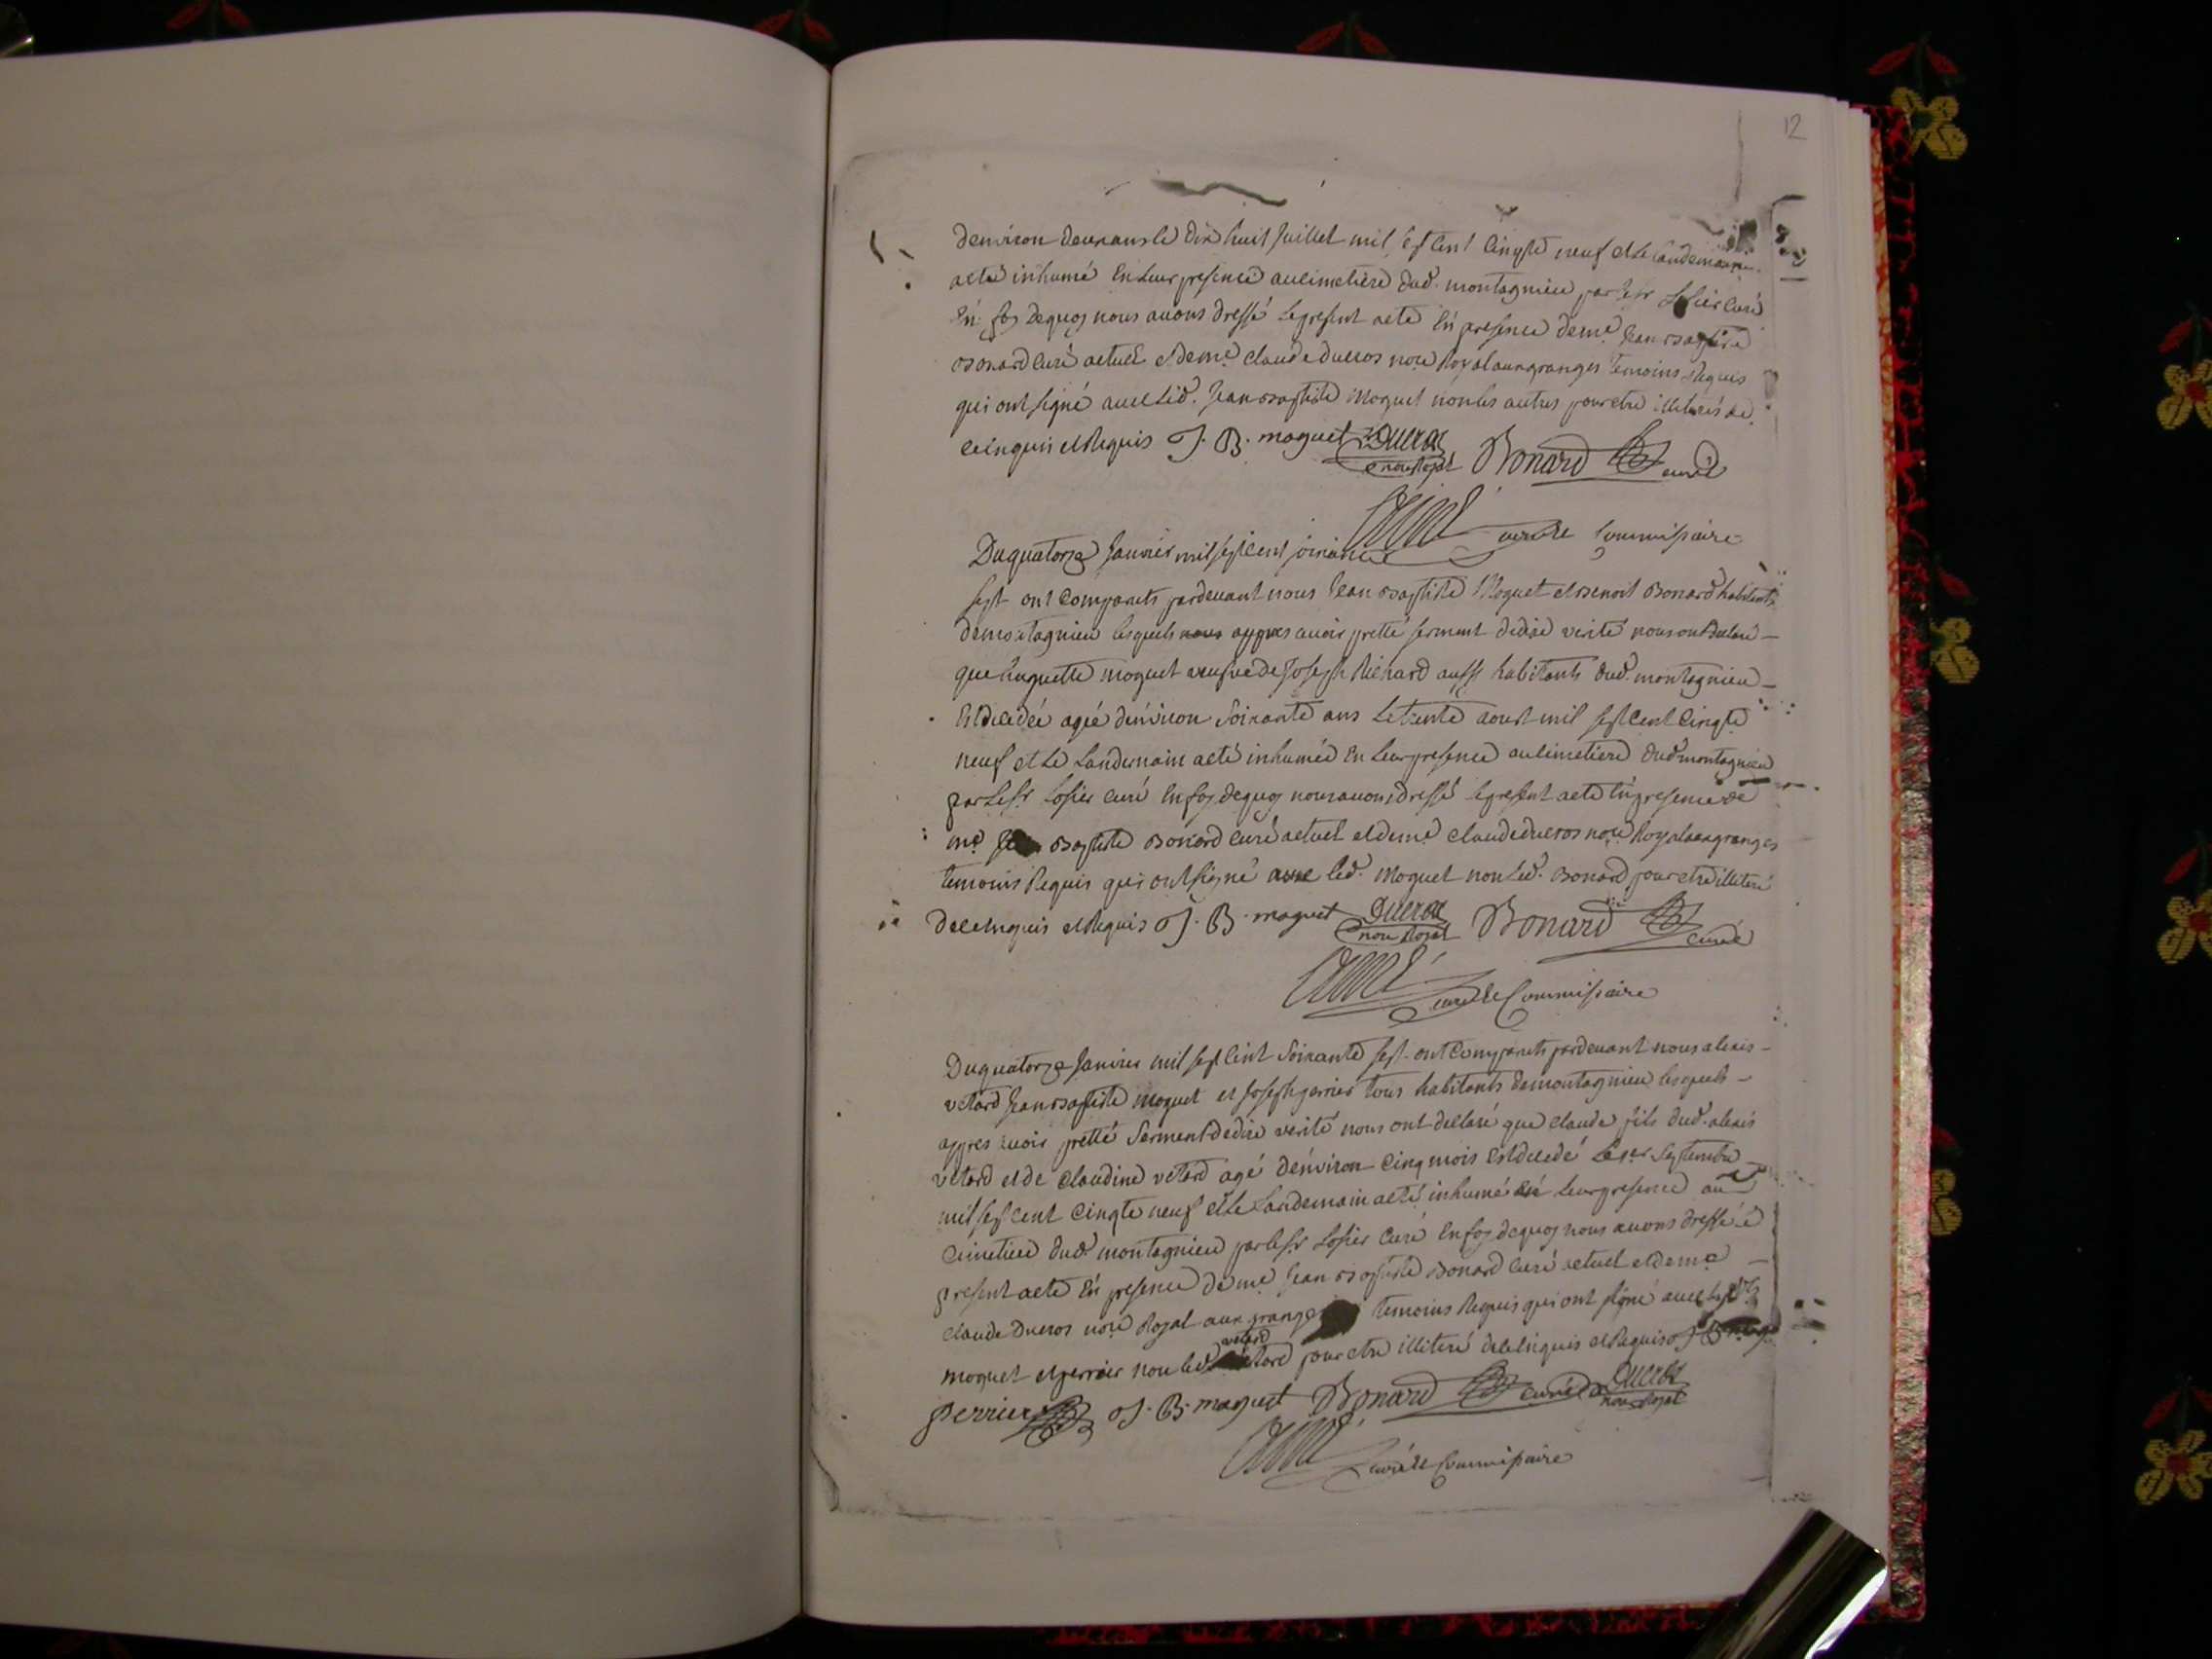 12
denviron deux ans le dix huit Juillet mil sept Cent Cinqte neuf et Le Landemain
aeté inhumé En Leur presence au Cimetiere dud. montagnieu par le Sr Losier Curé
En foy dequoy nous avons dressé Le present acte En presence de me Jean Baptiste
Bonard Curé actuel et de me claude ducros nore Royal aux granges temoins Requis
qui ont signé avec Led. Jean Baptiste Moguet non les autres pour etre illiterés de
ce Enquis et Requis J. B. moguet Ducros
nore Royal Bonard curé
curé et Commissaire
Du quatorze Janvier mil sept Cent soixante
sept ont Comparuts pardevant nous Jean Baptiste Moguet et Benoit Bonard habitants
de montagnieu lesquels appres avoir pretté serment de dire verité nous ont declaré
que huguette moguet veufve de Joseph Richard aussy habitants dud. montagnieu
Est decedée agée denviron Soixante ans Le trente aoust mil sept Cent Cinqte
neuf et Le Landemain aeté inhumée En Leur presence au Cimetiere dud montagnieu
par Le Sr Losier Curé En foy dequoy nous avons dressé Le present acte En presence de
me Jean Baptiste Bonard Curé actuel et de me Claude ducros nore Royal aux granges
temoins Requis qui ont signé avec Led. Moguet non Led. Bonard pour etre illiteré
de ce Enquis et Requis J. B. moguet Ducros
nore Royal Bonard curé
curé et Commissaire
Du quatorze Janvier mil sept Cent Soixante sept ont Comparuts pardevant nous alexis
vetard Jean Baptiste Moguet et Joseph perrier tous habitants de montagnieu lesquels
appres avoir pretté Serment de dire verité nous ont declaré que claude fils dud. alexis
vetard et de Claudine vetard agé denviron Cinq mois Est decedé Le 1er Septembre
mil sept cent Cinqte neuf et Le Landemain aeté inhumé En Leur presence au
Cimetiere dud montagnieu par le Sr Losier Curé En foy dequoy nous avons dressé Le
present acte En presence de me Jean Baptiste Bonard Curé actuel et de me
claude Ducros nore Royal aux granges temoins Requis qui ont signé avec
vetard
moguet et perrier non led. vetard pour etre illiteré de ce Enquis et Requis J B mog
perrier J. B. moguet Bonard curé Ducros
nore Royal
curé et Commissaire